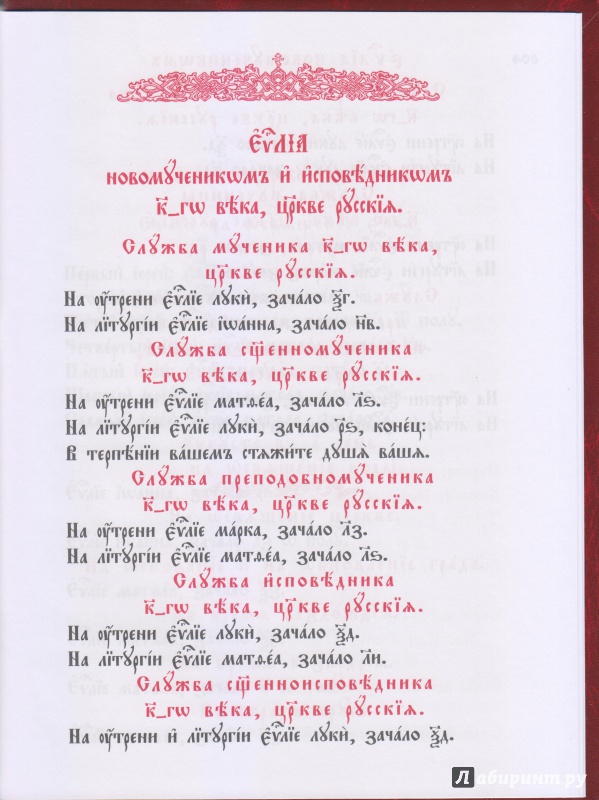 Е҆ѵⷢ҇лїѧ
новомꙋ́ченикѡмъ и҆ и҆сповѣ́дникѡмъ
к҃_гѡ вѣ́ка, цр҃кве рꙋ́сскїѧ.
Слꙋ́жба мꙋ́ченика к҃_гѡ вѣ́ка,
цр҃кве рꙋ́сскїѧ.
На ᲂу҆́трени є҆ѵⷢ҇лїе лꙋкѝ, зача́ло ѯ҃г.
На лїтꙋргі́и є҆ѵⷢ҇лїе і҆ѡа́нна, зача́ло н҃в.
Слꙋ́жба сщ҃енномꙋ́ченика
к҃_гѡ вѣ́ка, цр҃кве рꙋ́сскїѧ.
На ᲂу҆́трени є҆ѵⷢ҇лїе матѳе́а, зача́ло л҃ѕ.
На лїтꙋргі́и є҆ѵⷢ҇лїе лꙋкѝ, зача́ло р҃ѕ, коне́ц:
в терпѣ́нїи ва́шем стѧжи́те дꙋшѧ̑ ва́шѧ.
Слꙋ́жба преподобномꙋ́ченика
к҃_гѡ вѣ́ка, цр҃кве рꙋ́сскїѧ.
На ᲂу҆́трени є҆ѵⷢ҇лїе ма́рка, зача́ло л҃з.
На лїтꙋргі́и є҆ѵⷢ҇лїе матѳе́а, зача́ло л҃ѕ.
Слꙋ́жба и҆сповѣ́дника
к҃_гѡ вѣ́ка, цр҃кве рꙋ́сскїѧ.
На ᲂу҆́трени є҆ѵⷢ҇лїе лꙋкѝ, зача́ло ѯ҃д.
На лїтꙋргі́и є҆ѵⷢ҇лїе матѳе́а, зача́ло л҃и.
Слꙋ́жба сщ҃енноисповѣ́дника
к҃_гѡ вѣ́ка, цр҃кве рꙋ́сскїѧ.
На ᲂу҆́трени и҆ лїтꙋргі́и є҆ѵⷢ҇лїе лꙋкѝ, зача́ло ѯ҃д.
Лабиринт.ру